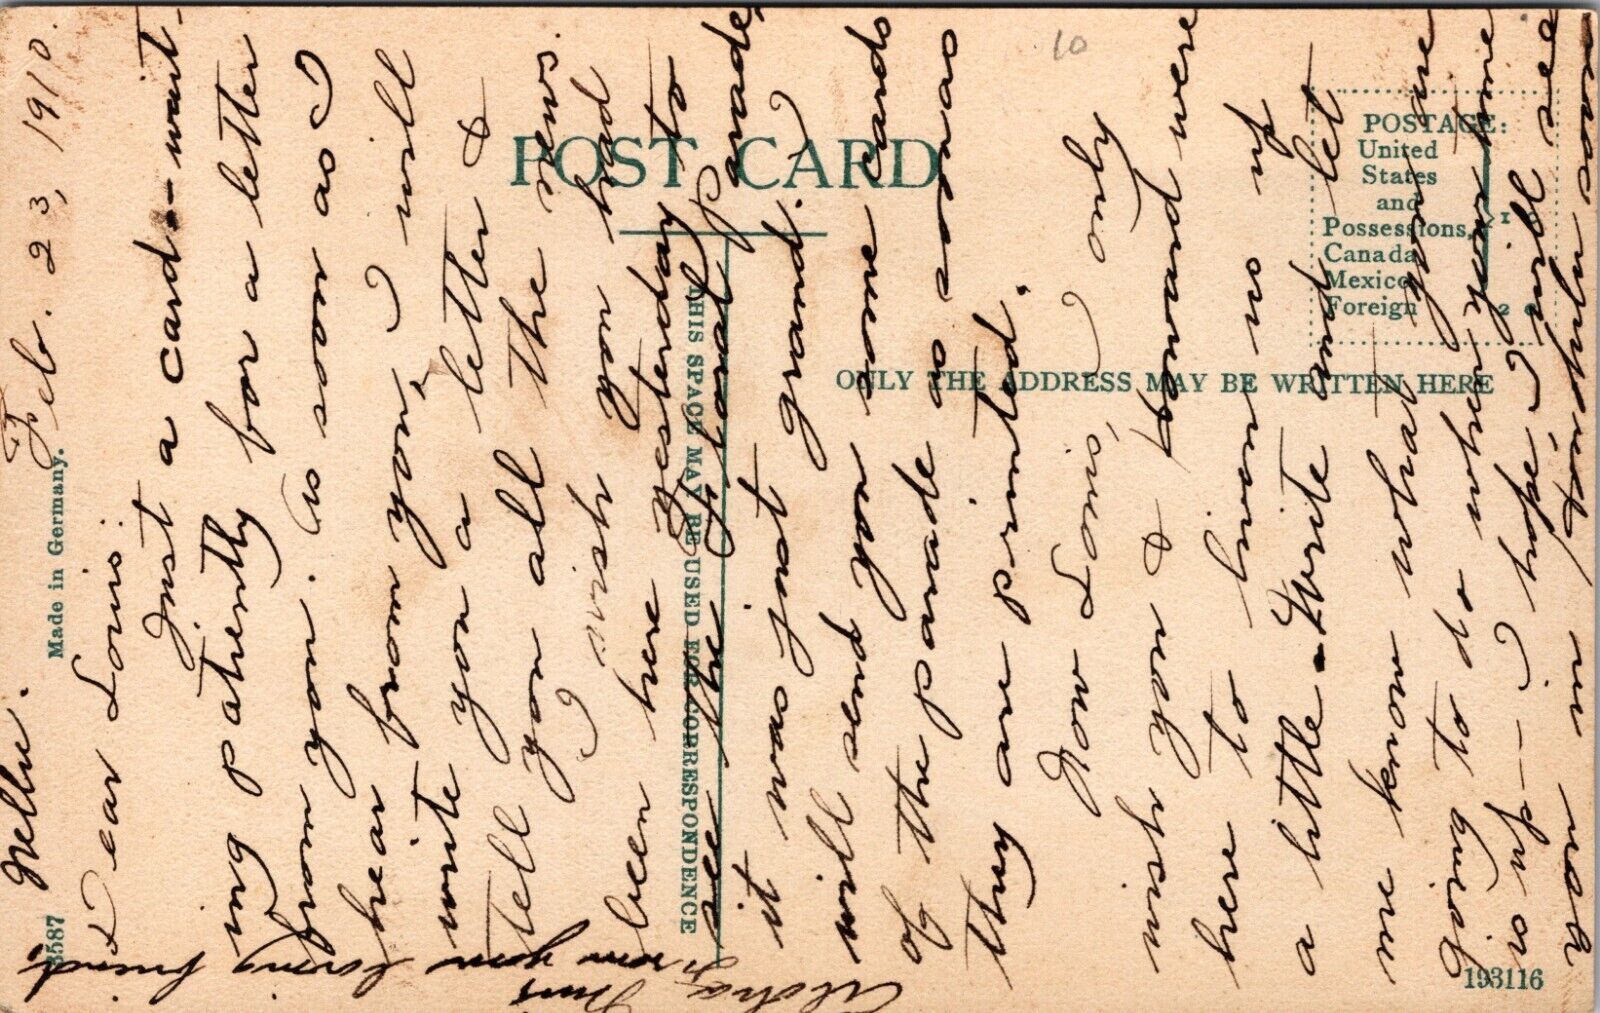 Feb. 23, 1910.
Dear Louis:
Just a card - wait-
ing patiently for a letter
from you. As soon as I
hear from you, I will
write you a letter &
tell you all the news.
I wish you had
been here yesterday to
see the Float Parade,
it was just grand. I
will send you some cards
of the parade as soon as
they are printed.
Now Louis, I only
wish you & Howard were
here to liven us up
a little - Write and let
me know what you are
going to do when your time
is up - I hope I will see
you in
soon
From your loving friend,
Nellie.
POST CARD
THIS SPACE MAY BE USED FOR CORRESPONDENCE
ONLY THE ADDRESS MAY BE WRITTEN HERE
POSTAGE:
United
States
and
Possessions,
Canada
Mexico
1 c
Foreign 2 c
Made in Germany.
3587
193116
10